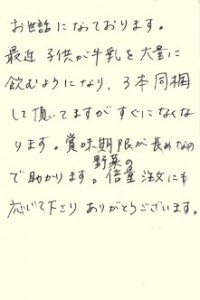 お世話になっております。
最近 子供が牛乳を大量に
飲むようになり、3本同梱
して頂いてますがすぐになくな
ります。賞味期限が長めなの
野菜の
で助かります。倍量注文にも
応じて下さり ありがとうございます。